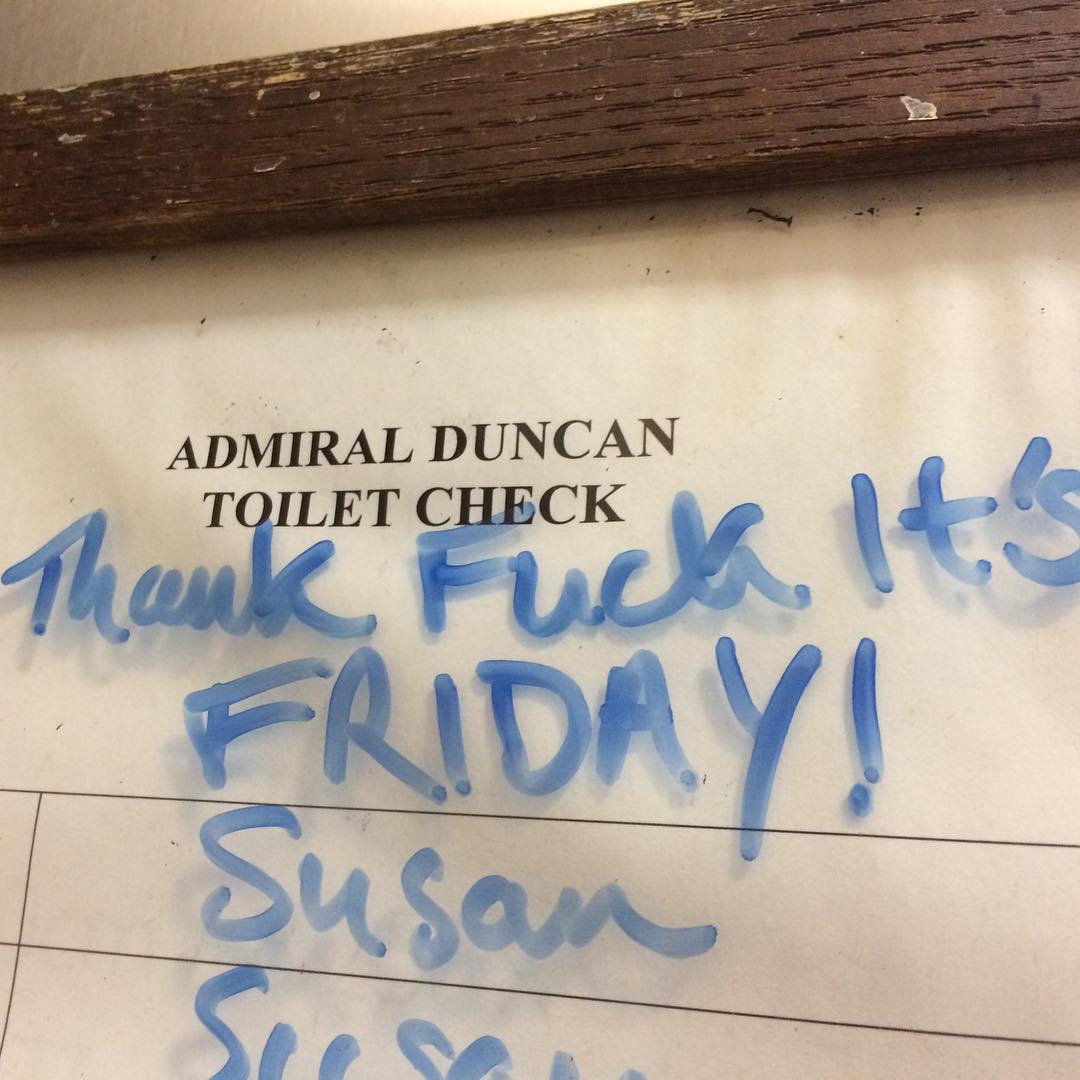 ADMIRAL DUNCAN
TOILET CHECK
Thank Fuck It's
FRIDAY!
Susan
Susan